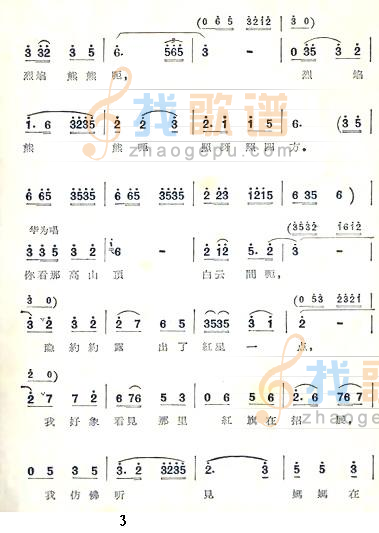 (0 6 5 3212 | 3 0)
3 32 3 5 | 6. 565 | 3 - | 0 35 3 2
烈焰 熊熊 呃, 烈 焰
1. 6 3235 | 2 2 3 | 2. 1 1 5 | 6. (3 5
熊 熊 呃 照 四方。
6 65 3535 | 6 65 3535 | 2 23 1215 | 6 35 6 )
华为唱 (3532 1612
3 35 3 2 | 6 - | 2 12 5. 2 | 3 -
你看那 高山 頂 白云 間 呃,
3 0) (0 53 2321
3 2 3 2 | 2 7 6 5 | 3535 3 1 | 2 -
隐 約約 露 出了 紅星 一 点,
2 0)
2 7 7 2 | 6 76 5 3 | 0 1 2 3 | 2. 6 76 7
我 好象 看見 那里 紅旗在 招 展,
0 5 3 5 | 3. 2 3235 | 2. 3 | 5 5 3
我 仿佛 听 見 媽媽在
3
找歌谱
zhaogepu.com
找歌谱
zhaogepu.com